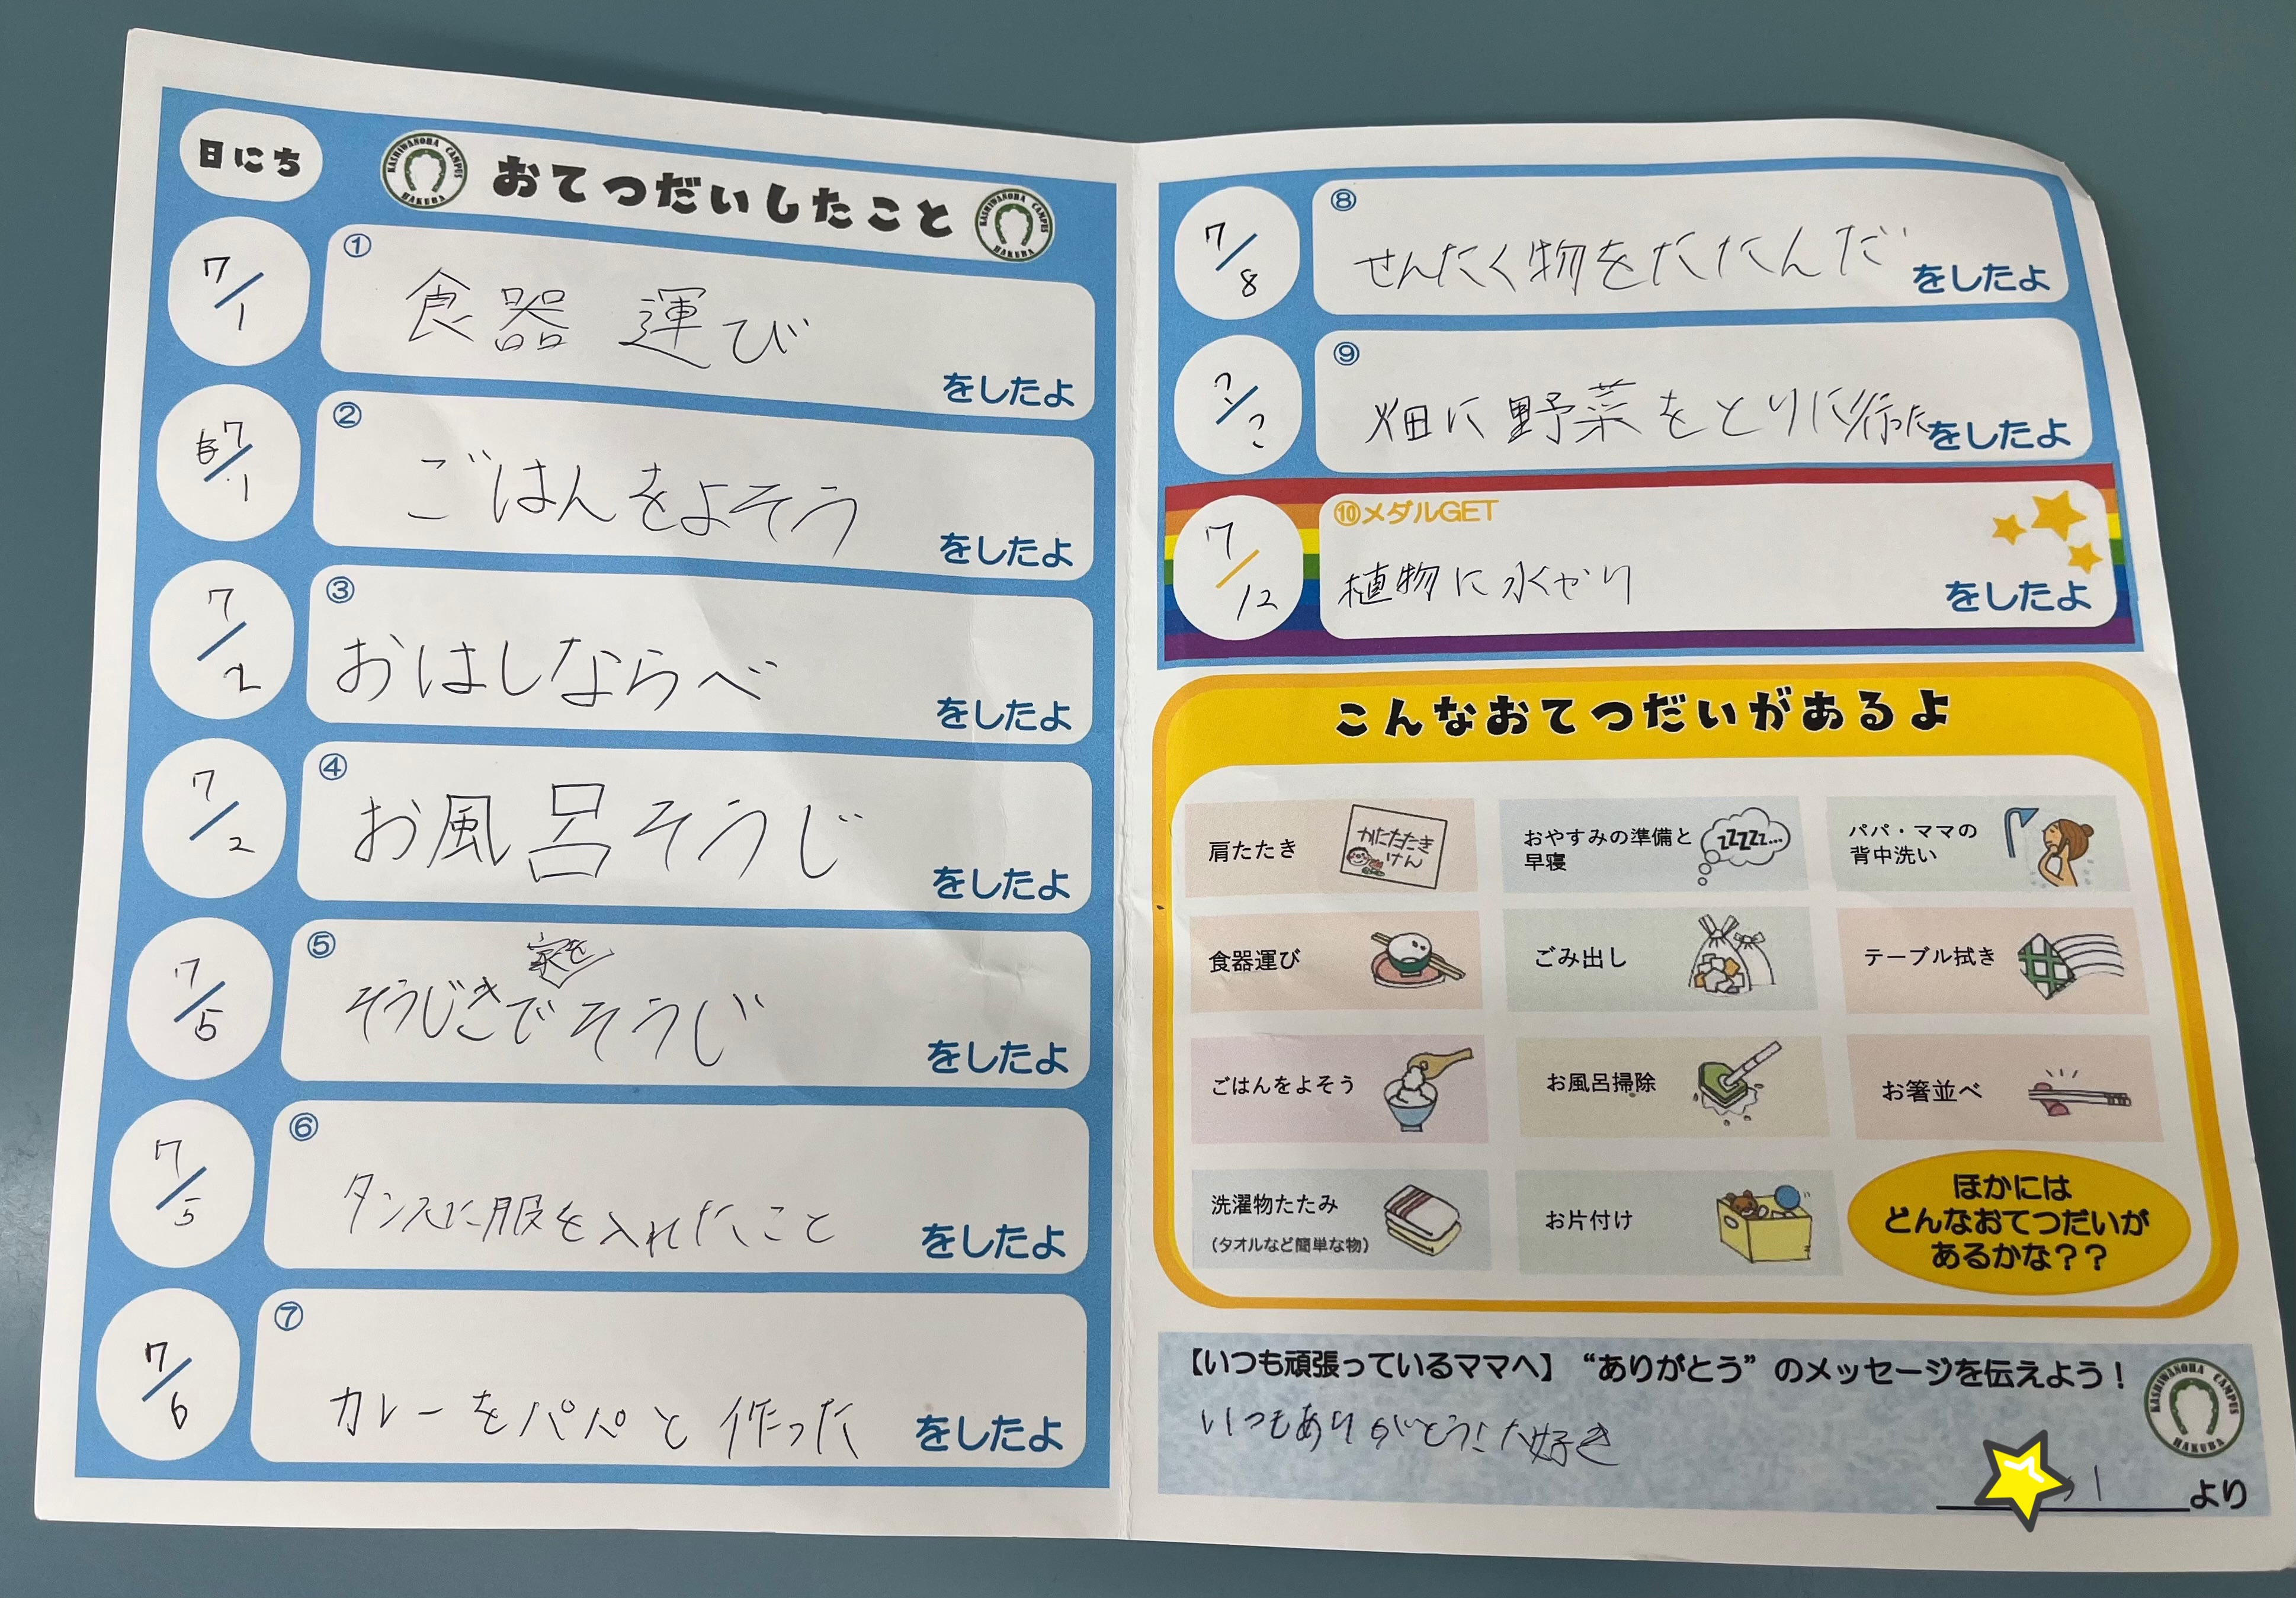 日にち
おてつだいしたこと
KASHIWANOHA CAMPUS HAKUBA
KASHIWANOHA CAMPUS HAKUBA
7/1
①
食器 運び
をしたよ
7/1
②
ごはんをよそう
をしたよ
7/2
③
おはしならべ
をしたよ
7/2
④
お風呂そうじ
をしたよ
7/5
⑤
家を
そうじきでそうじ
をしたよ
7/5
⑥
タンスに服を入れたこと
をしたよ
7/6
⑦
カレーをパパと作った
をしたよ
7/8
⑧
せんたく物をたたんだ
をしたよ
?/?
⑨
畑に野菜をとりに行った
をしたよ
7/12
⑩メダルGET
植物に水やり
をしたよ
こんなおてつだいがあるよ
肩たたき
かたたたき
けん
おやすみの準備と
早寝
zzzzz...
パパ・ママの
背中洗い
食器運び
ごみ出し
テーブル拭き
ごはんをよそう
お風呂掃除
お箸並べ
洗濯物たたみ
(タオルなど簡単な物)
お片付け
ほかには
どんなおてつだいが
あるかな??
【いつも頑張っているママへ】“ありがとう”のメッセージを伝えよう!
いつもありがとう!大好き
KASHIWANOHA CAMPUS HAKUBA
より